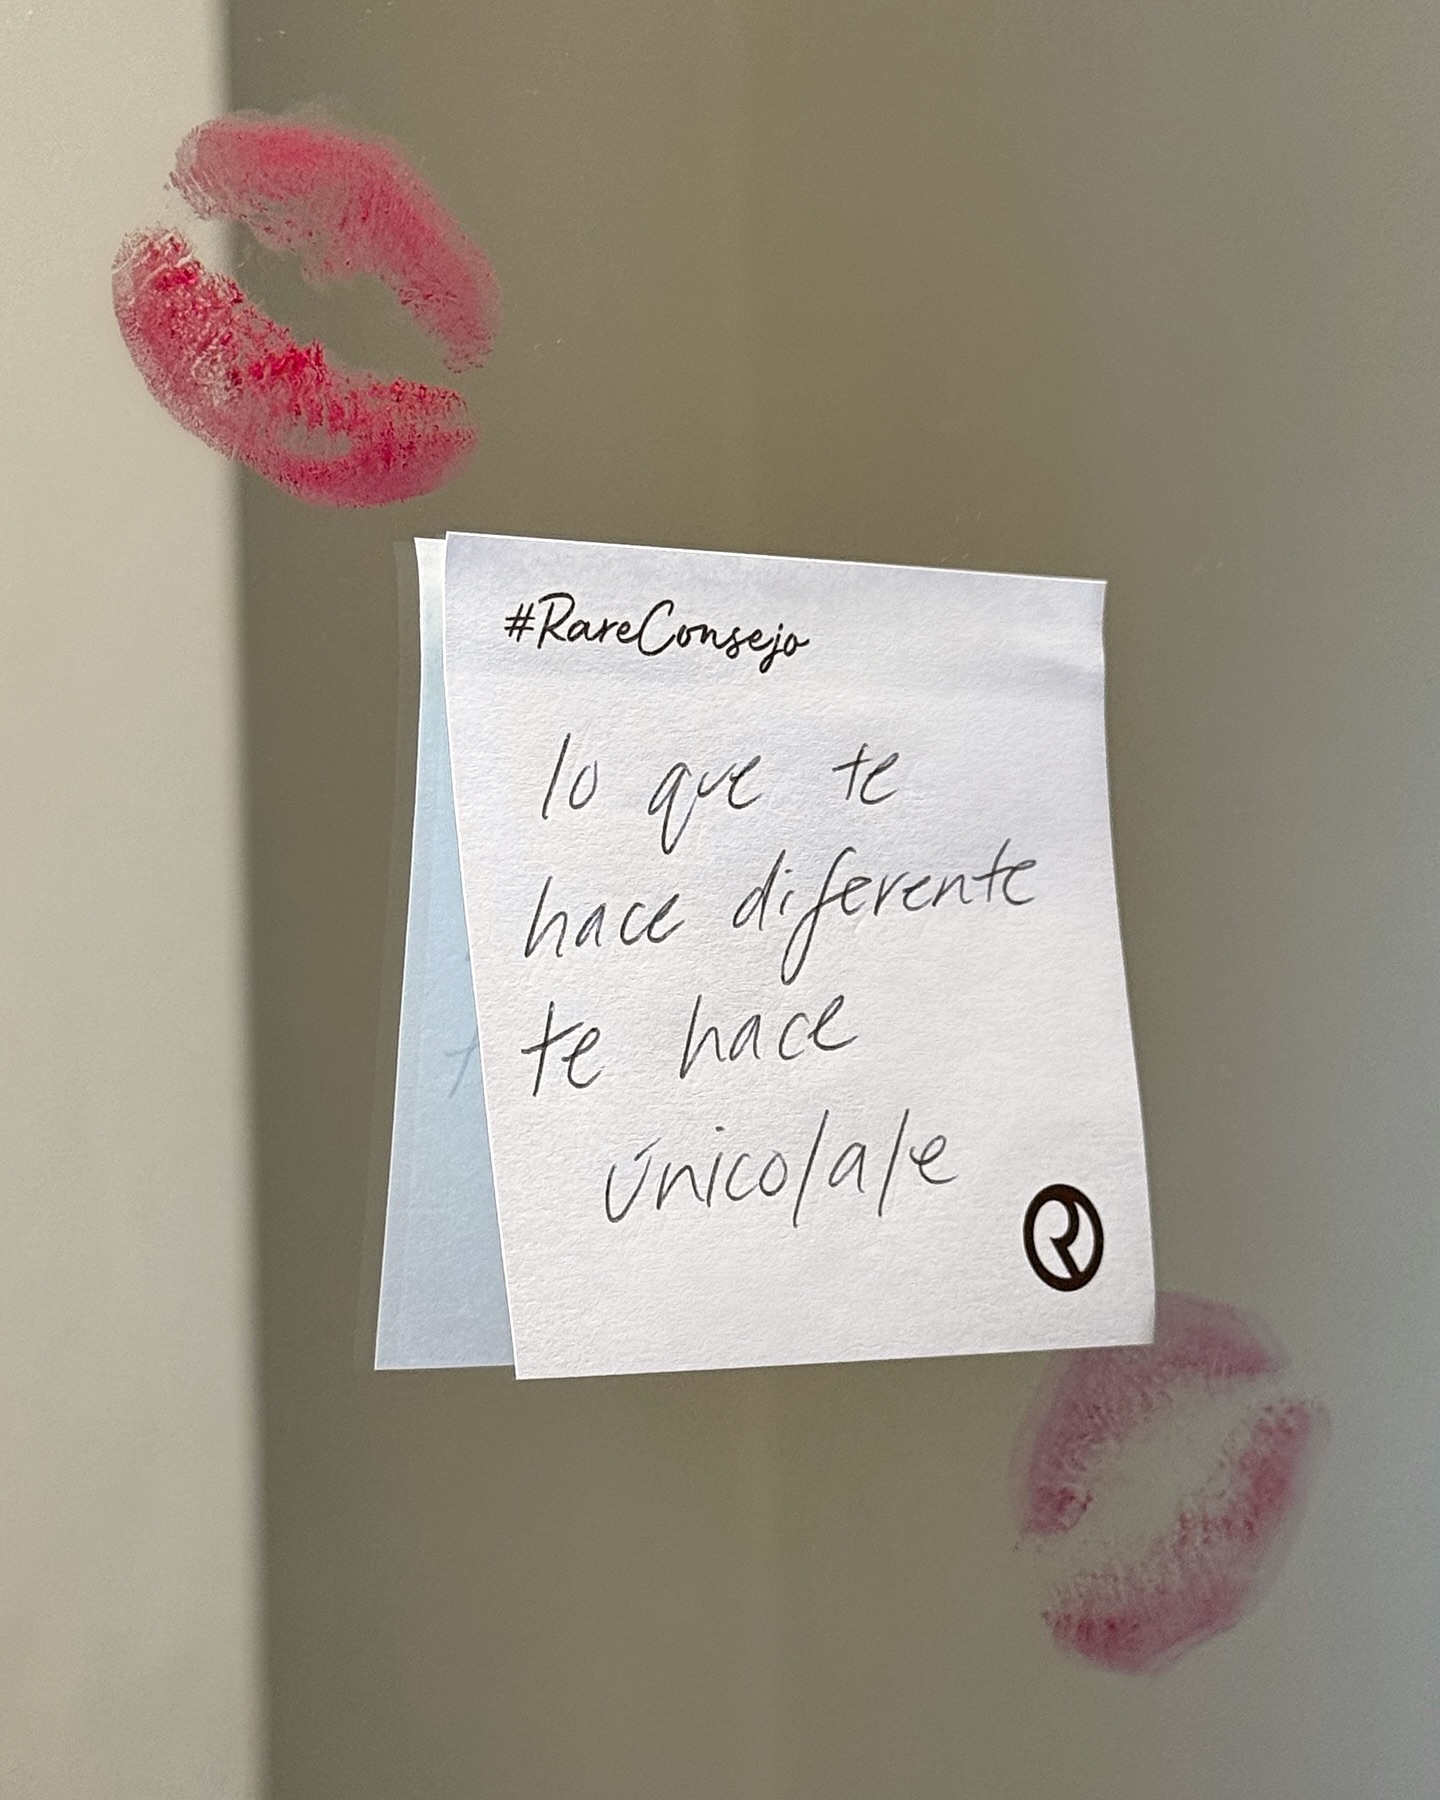 #RareConsejo
lo que te
hace diferente
te hace
único/a/e
R